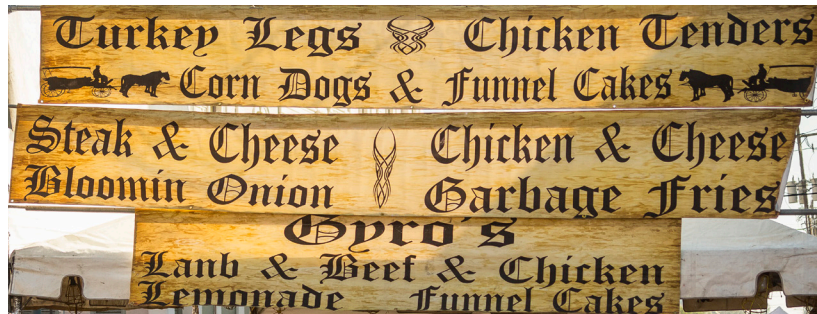 Turkey Legs Chicken Tenders
Corn Dogs & Funnel Cakes
Steak & Cheese Chicken & Cheese
Bloomin Onion Garbage Fries
Gyro's
Lanb & Beef & Chicken
Lemonade Funnel Cakes